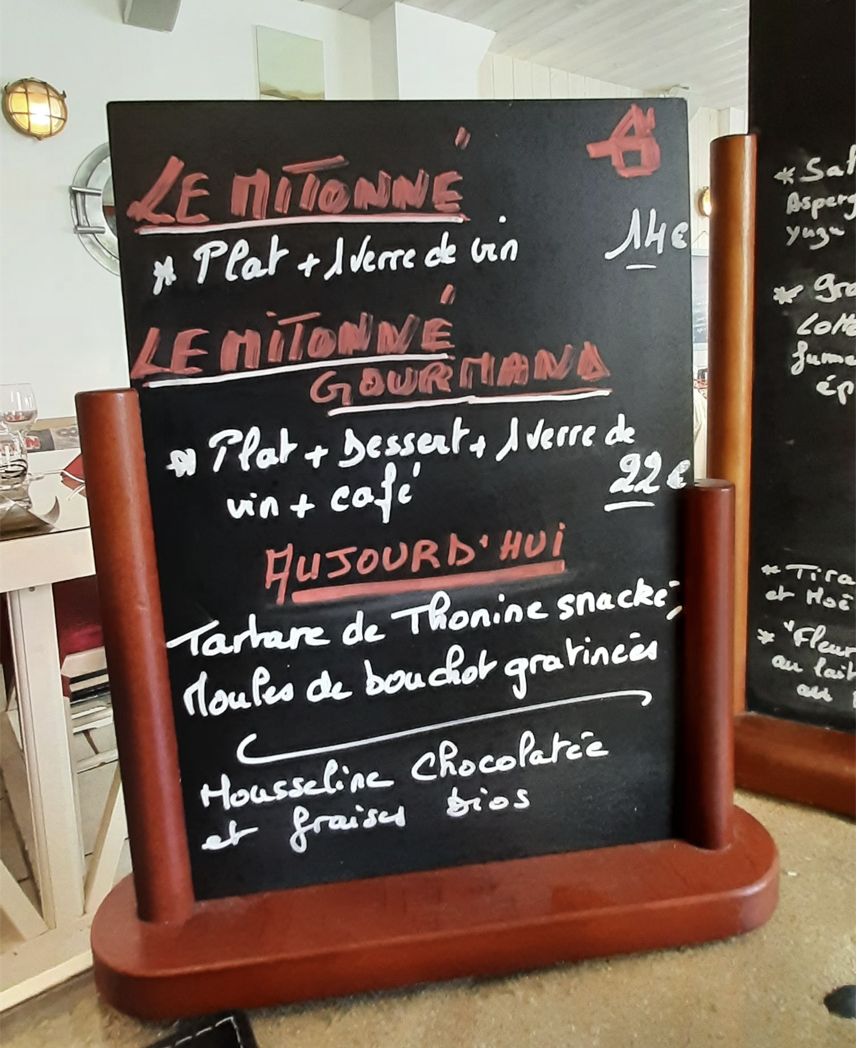 LE MITONNÉ
* Plat + 1 verre de vin 14€
LE MITONNÉ
GOURMAND
* Plat + Dessert + 1 verre de
vin + café 22€
AUJOURD'HUI
Tartare de Thonine snacké,
Moules de bouchot gratinées
Mousseline Chocolatée
et fraises bios
* Sa
Asperg
yuzu
* Gra
Lotte
fume
ép
* Tira
et Noë
* "Fleur
au lait
au